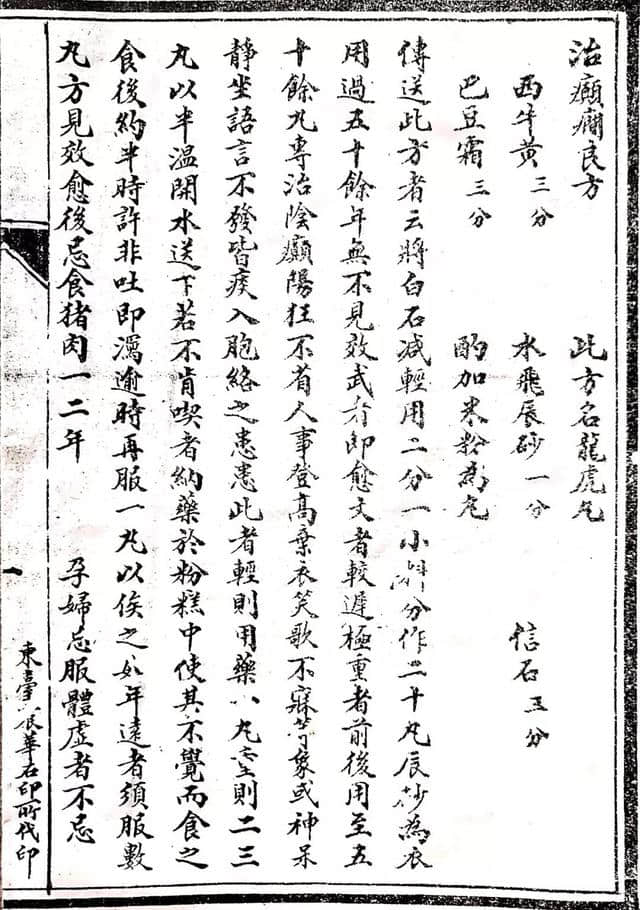 治癲癇良方　此方名龍虎丸
西牛黃三分　水飛辰砂一分　信石三分
巴豆霜三分　酌加米粉為丸
傳送此方者云將白石減輕用二分一小料分作二十丸辰抄為衣
用過五十餘年無不見效武者即愈文者較遲極重者前後用至五
十餘丸專治陰癲陽狂不省人事登高棄衣笑歌不寐等象或神呆
靜坐語言不發皆痰入胞絡之患患此者輕則用藥八丸重則二三
丸以半溫開水送下若不肯喫者納藥於粉糕中使其不覺而食之
食後約半時許非吐即瀉逾時再服一丸以俟之如年遠者須服數
丸方見效愈後忌食猪肉一二年　孕婦忌服體虛者不忌
東臺振華石印所代印